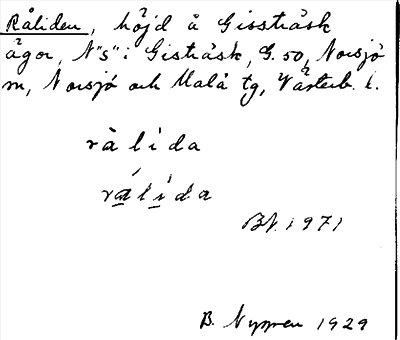 Råliden, höjd å Gissträsk
ägor, N"5" i Gisträsk, G. 50, Norsjö
sn, Norsjö och Malå tg, Västerb. l.
rålida
rálída
BN. 1971
B. Nygren 1929